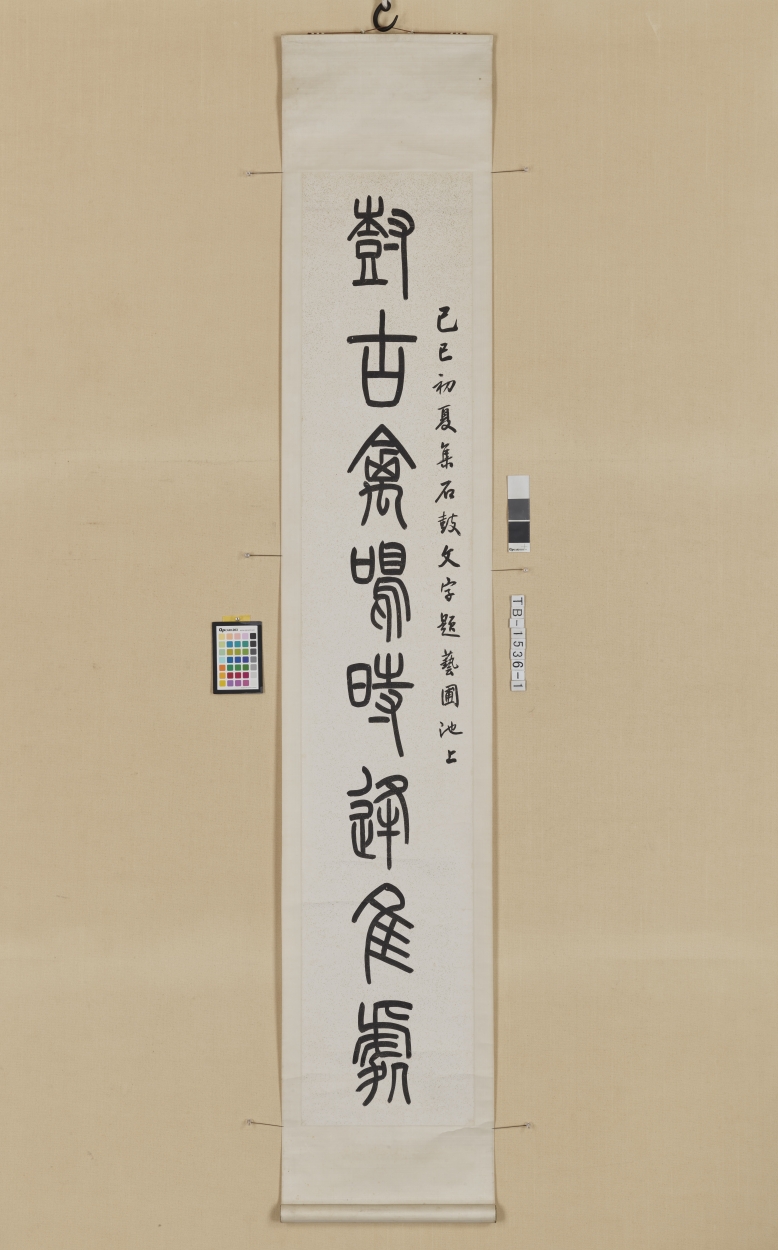 己巳初夏集石鼓文字題藝圃池上
尌古禽鳴時逢隹處
TB-1536-1